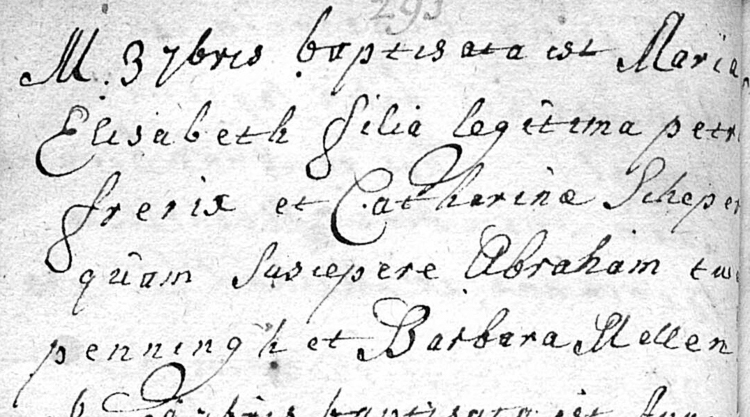 293
M. 3 7bris baptisata est Maria
Elisabeth filia legitima petri
frerix et Catharinæ Schepen
quam suscepere Abraham tw
penningh et Barbara Mellen
7bris baptisata est